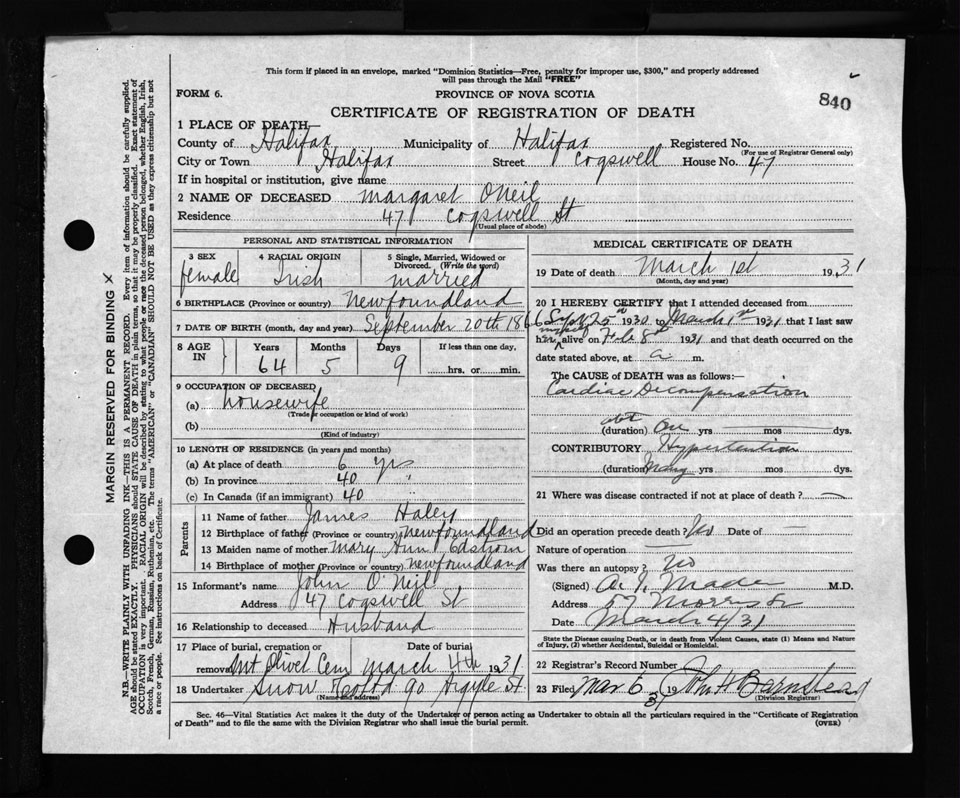 This form if placed in an envelope, marked "Dominion Statistics—Free, penalty for improper use, $300," and properly addressed
will pass through the Mail "FREE"
FORM 6.
PROVINCE OF NOVA SCOTIA
840
CERTIFICATE OF REGISTRATION OF DEATH
1 PLACE OF DEATH—
County of Halifax Municipality of Halifax Registered No.
(For use of Registrar General only)
City or Town Halifax Street Cogswell House No. 47
If in hospital or institution, give name
2 NAME OF DECEASED Margaret O'Neil
Residence 47 Cogswell St
(Usual place of abode)
PERSONAL AND STATISTICAL INFORMATION
3 SEX female
4 RACIAL ORIGIN Irish
5 Single, Married, Widowed or Divorced. (Write the word) married
6 BIRTHPLACE (Province or country) Newfoundland
7 DATE OF BIRTH (month, day and year) September 20th 1866
8 AGE IN Years Months Days If less than one day,
64 5 9 hrs. or min.
9 OCCUPATION OF DECEASED
(a) housewife
(Trade or occupation or kind of work)
(b)
(Kind of industry)
10 LENGTH OF RESIDENCE (in years and months)
(a) At place of death 6 yrs
(b) In province 40 "
(c) In Canada (if an immigrant) 40 "
Parents
11 Name of father James Haley
12 Birthplace of father (Province or country) Newfoundland
13 Maiden name of mother Mary Ann
14 Birthplace of mother (Province or country) Newfoundland
15 Informant's name John O'Neil
Address 47 Cogswell St
16 Relationship to deceased Husband
17 Place of burial, cremation or removal Mt Olivet Cem Date of burial March 4th 1931
18 Undertaker Snow 90 Argyle St
(Name and address)
MEDICAL CERTIFICATE OF DEATH
19 Date of death March 1st 1931
(Month, day and year)
20 I HEREBY CERTIFY that I attended deceased from
Sept 25th 1930 to March 1st 1931 that I last saw
her alive on Feb 8th 1931 and that death occurred on the
date stated above, at a. m.
The CAUSE of DEATH was as follows:—
Cardiac Decompensation
abt
(duration) One yrs — mos — dys.
CONTRIBUTORY Hypertention
(duration) Many yrs mos dys.
21 Where was disease contracted if not at place of death? —
Did an operation precede death? No Date of —
Nature of operation —
Was there an autopsy? No
(Signed) A. I. Mader M.D.
Address 57 Morris St
Date March 4/31
State the Disease causing Death, or in death from Violent Causes, state (1) Means and Nature
of Injury, (2) whether Accidental, Suicidal or Homicidal.
22 Registrar's Record Number
23 Filed Mar 6 1931 John H Barnstead
(Division Registrar)
Sec. 46—Vital Statistics Act makes it the duty of the Undertaker or person acting as Undertaker to obtain all the particulars required in the "Certificate of Registration
of Death" and to file the same with the Division Registrar who shall issue the burial permit. (OVER)
MARGIN RESERVED FOR BINDING X
N.B.—WRITE PLAINLY WITH UNFADING INK—THIS IS A PERMANENT RECORD. Every item of information should be carefully supplied.
AGE should be stated EXACTLY. PHYSICIANS should STATE CAUSE OF DEATH in plain terms, so that it may be properly classified. Exact statement of
OCCUPATION is very important. RACIAL ORIGIN will be described by stating to what people or race the deceased person belonged, whether English, Irish,
Scotch, French, German, Russian, Ruthenian, etc. The terms "AMERICAN" or "CANADIAN" SHOULD NOT BE USED as they express citizenship but not
a race or people. See instructions on back of Certificate.